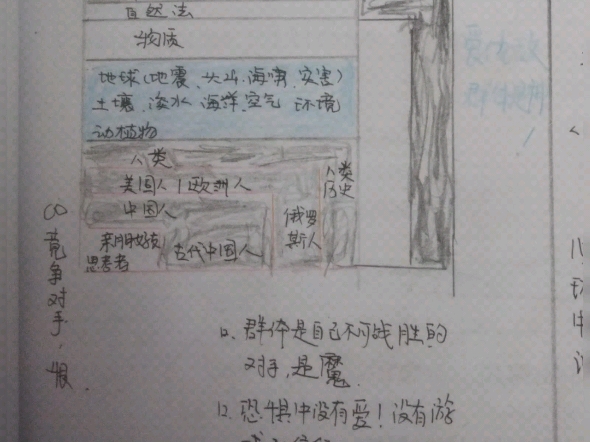 自然法
物质
地球(地震、火山、海啸、灾害)
土壤、淡水、海洋、空气 环境
动植物
人类
人类
历史
美国人 | 欧洲人
中国人
俄罗
斯人
古代中国人
思考者
8 竞争对手,恨.
11. 群体是自己不可战胜的
对手,是魔.
12. 恐惧中没有爱!没有游